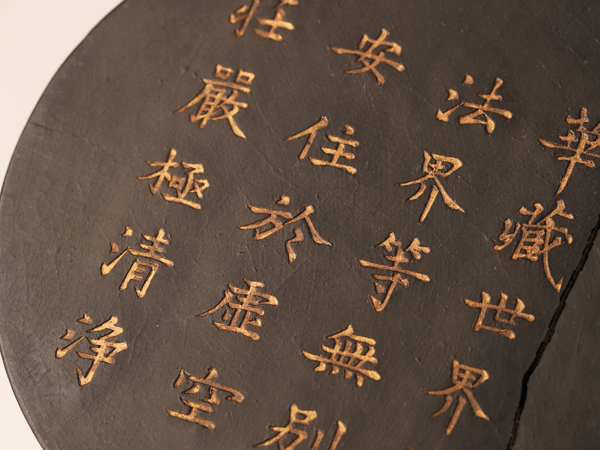 華藏世界
法界等無別
安住於虛空
莊嚴極清淨